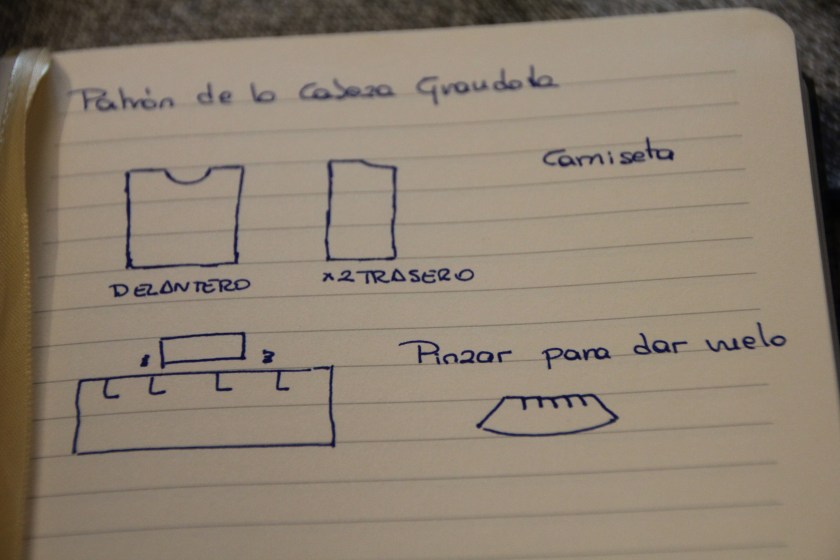 Patrón de la Cabeza Graudota
Camiseta
DELANTERO
x2 TRASERO
Pinzar para dar vuelo